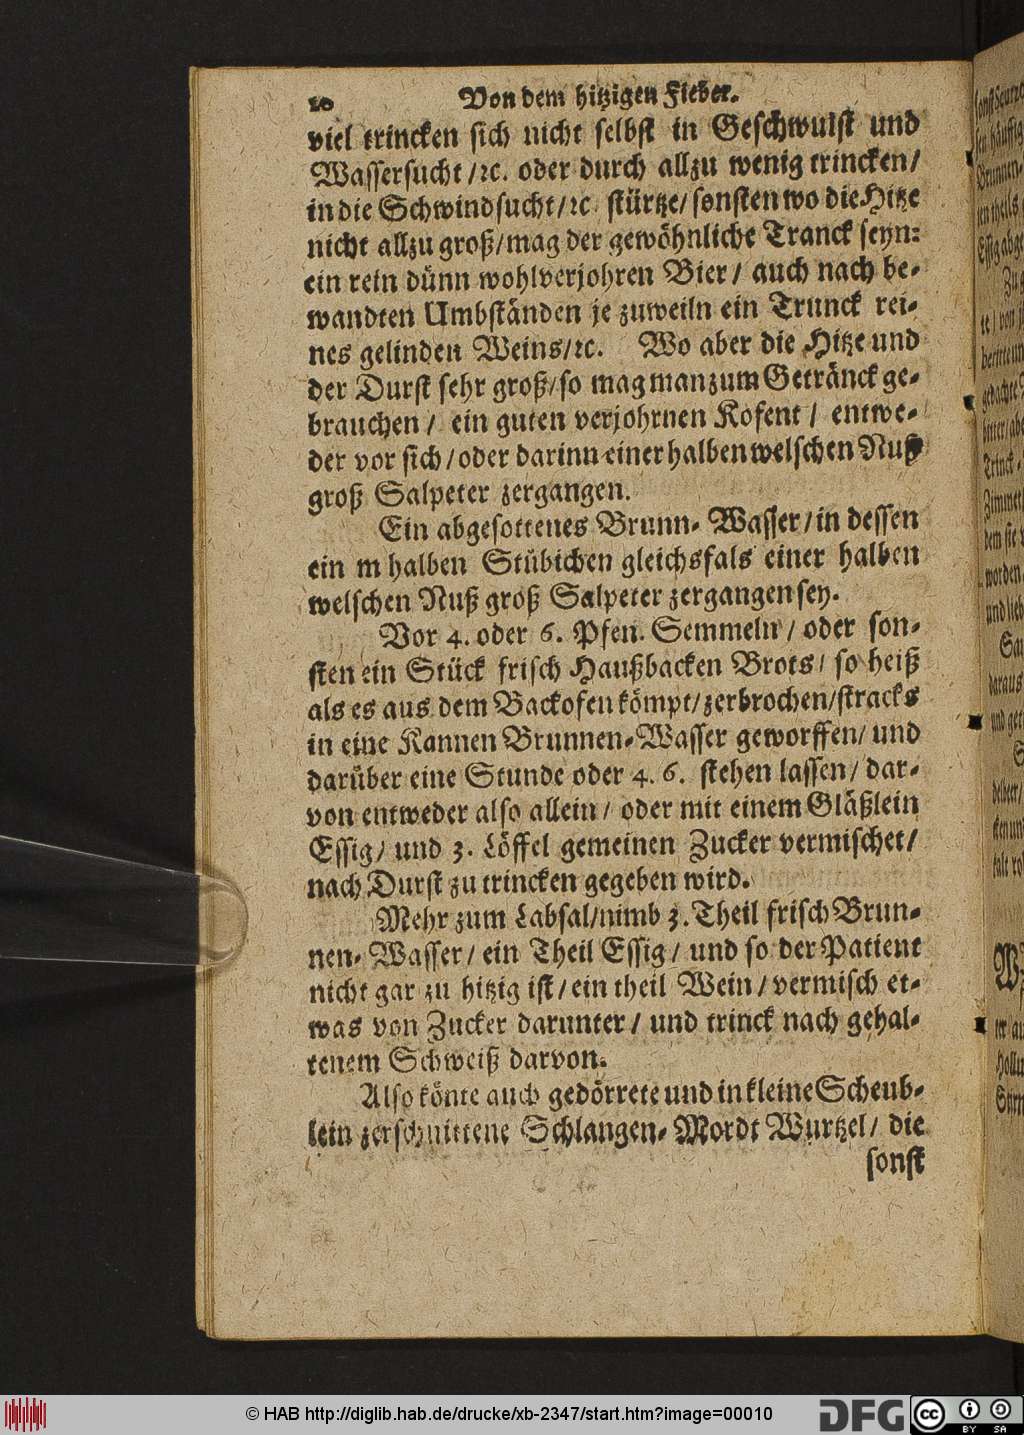 10 Von dem hitzigen Fieber.
viel trincken sich nicht selbst in Geschwulst und
Wassersucht /ꝛc. oder durch allzu wenig trincken/
in die Schwindsucht/ꝛc stürtze/ sonsten wo die Hitze
nicht allzu groß/mag der gewöhnliche Tranck seyn:
ein rein dünn wohlverjohren Bier/ auch nach be-
wandten Umbständen je zuweiln ein Trunck rei-
nes gelinden Weins/ꝛc. Wo aber die Hitze und
der Durst sehr groß/so mag man zum Getränck ge-
brauchen/ ein guten verjohrnen Kofent/ entwe-
der vor sich/oder darinn einer halben welschen Nuß
groß Salpeter zergangen.
Ein abgesottenes Brunn-Wasser/in dessen
ein m halben Stübichen gleichsfals einer halben
welschen Nuß groß Salpeter zergangen sey.
Vor 4. oder 6. Pfen. Semmeln/ oder son-
sten ein Stück frisch Haußbacken Brots/ so heiß
als es aus dem Backofen kömpt/zerbrochen/stracks
in eine Kannen Brunnen-Wasser geworffen/ und
darüber eine Stunde oder 4. 6. stehen lassen/ dar-
von entweder also allein/ oder mit einem Gläßlein
Essig/ und 3. Löffel gemeinen Zucker vermischet/
nach Durst zu trincken gegeben wird.
Mehr zum Labsal/nimb 3. Theil frisch Brun-
nen-Wasser/ ein Theil Essig/ und so der Patient
nicht gar zu hitzig ist/ein theil Wein/vermisch et-
was von Zucker darunter/ und trinck nach gehal-
tenem Schweiß darvon.
Also könte auch gedörrete und in kleine Scheub-
lein zerschnittene Schlangen-Mordt Wurtzel/ die
sonst
© HAB http://diglib.hab.de/drucke/xb-2347/start.htm?image=00010
DFG
cc BY SA